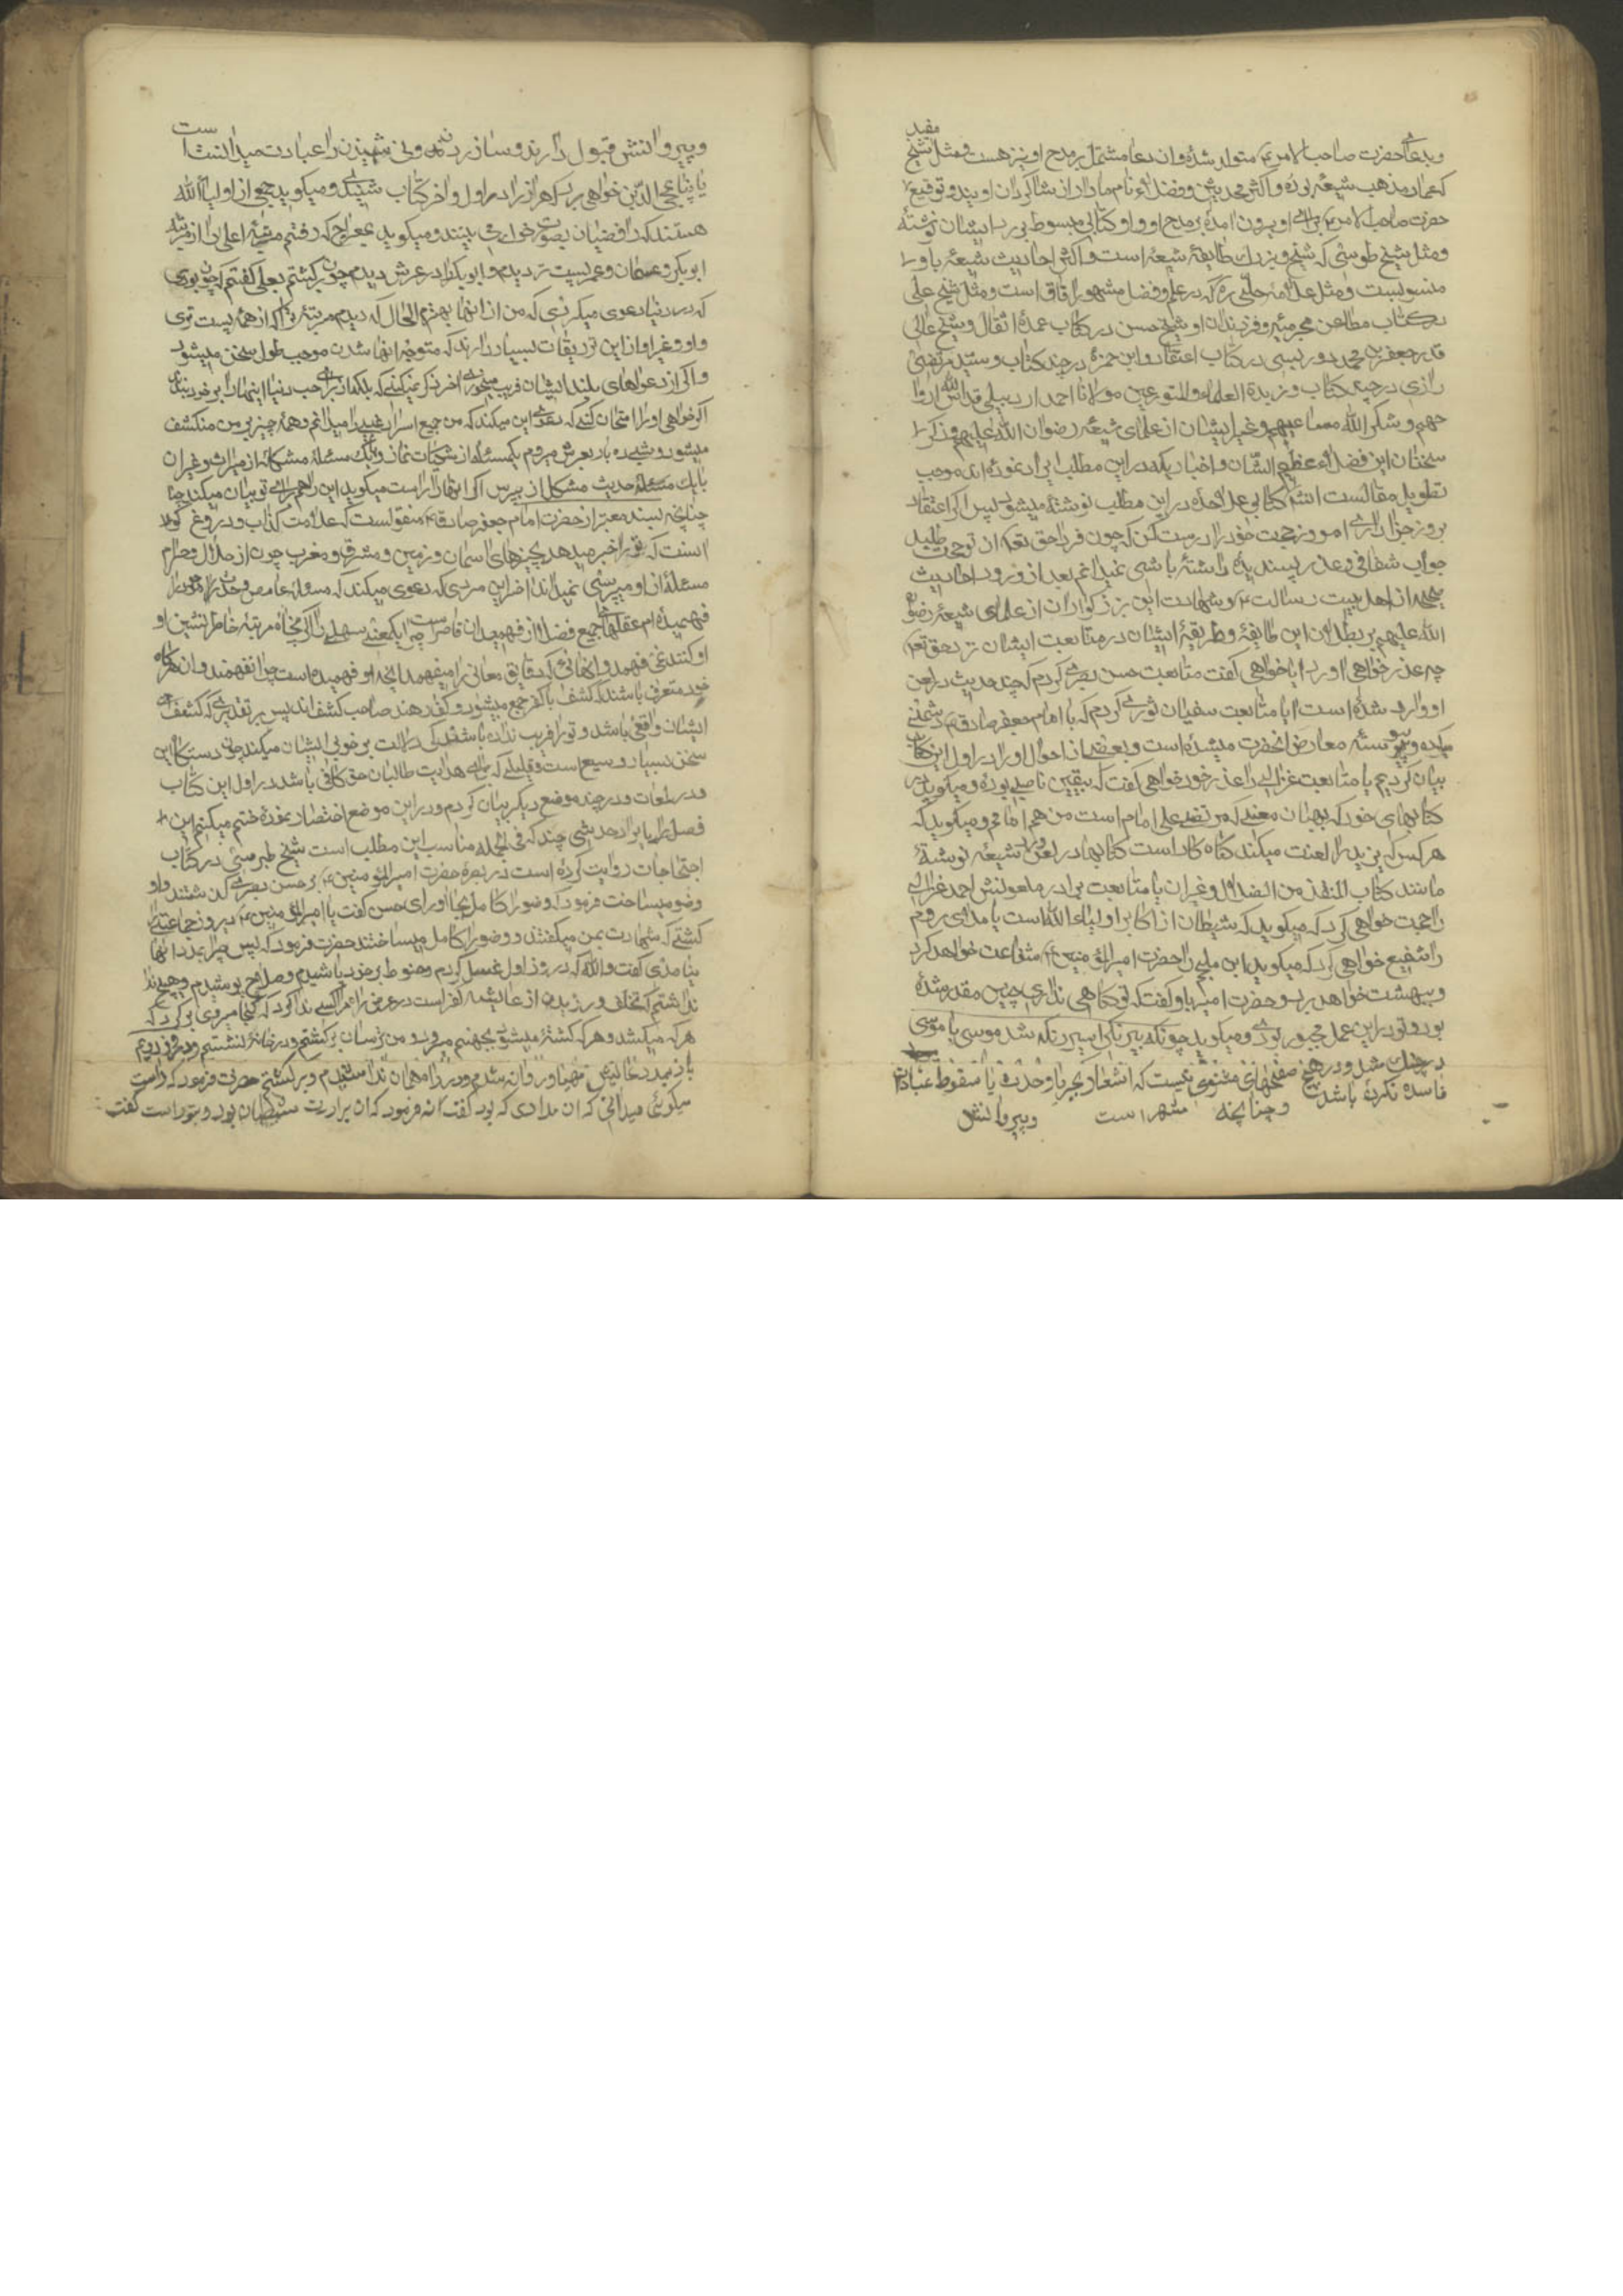 مفید
و بدعای حضرت صاحب الامر ع متولد شده و ان دعا مشتمل بر مدح او نیز هست و مثل شیخ
که عماد مذهب شیعه بوده و اکثر محدثین و فضلاء نام مادار از شاکردان اویند و توقیع
حضرت صاحب الامر ع برای او بیرون امده بر مدح او و او کتابی مبسوط بر رد ایشان نوشته
و مثل شیخ طوسی که شیخ و بزرك طایفهٔ شیعه است و اکثر احادیث شیعه باو
منسوبست و مثل علامه حلی ره که در علم و فضل مشهور افاق است و مثل شیخ علی
در کتاب مطاعن مجرمیه و فرزندان او شیخ حسن در کتاب عمدة المقال و شیخ عالی
قدر جعفر بن محمد دوریستی در کتاب اعتقاد و ابن حمزه در چند کتاب و سید مرتضی
رازی در چند کتاب و زبدة العلماء والمتورعین مولانا احمد اردبیلی قدس الله ارواحهم
و شکر الله مساعیهم و غیر ایشان از علمای شیعه رضوان الله علیهم و ذکر
سخنان این فضلاء عظیم الشان و اخباریکه در این مطلب ایراد نموده اند موجب
تطویل مقالست انشا کتابی علاحده در این مطلب نوشته میشود پس اکر اعتقاد
بروز جزا داری امروز حجت خود را درست کن که چون فردا حق تعه از تو حجت طلبد
جواب شفافی و عذر پسندیده داشته باشی نمیدانم بعد از ورود احادیث
صحیحه از اهل بیت رسالت ع و شهادت این بزرکواران از علمای شیعه رضوان
الله علیهم بر بطلان این طایفه و طریقهٔ ایشان در متابعت ایشان نزد حق تعه
چه عذر خواهی اورد ایا خواهی کفت متابعت حسن بصری کردم که چند حدیث در لعن
او وارد شده است یا متابعت سفیان ثوری کردم که با امام جعفر صادق ع دشمنی
میکرده و پیوسته معارض انحضرت میشده است و بعضی از احوال او را در اول این کتاب
بیان کردیم یا متابعت غزالی را عذر خود خواهی کفت که بیقین ناصبی بوده و میکوید در
کتابهای خود که بهمان معنی که مرتضی علی امام است من هم امامم و میکوید که
هر کس که یزید را لعنت میکند کناه کار است کتابها در لعن و رد شیعه نوشته
مانند کتاب المنقذ من الضلال و غیران یا متابعت برادر ملعونش احمد غزالی
را حجت خواهی کرد که میکوید که شیطان از اکابر اولیاء الله است یا ملای روم
را شفیع خواهی کرد که میکوید ابن ملجم را حضرت امیرالمؤمنین ع شفاعت خواهد کرد
و ببهشت خواهد برد و حضرت امیر باو کفت که تو کناهی نداری چنین مقدر شده
بود و تو در این عمل مجبور بودی و میکوید چونکه بیرنکی اسیر رنک شد موسی با موسی
در جنك شد و در هیچ صفحهای مثنوی نیست که اشعار بجبر یا وحدت یا سقوط عبادات
فاسده نکرده باشد و چنانچه مشهر است
و پیروانش
و پیروانش قبول دارند و ساز و دف و نی شنیدن را عبادت میدانست
یا پناه بمحی الدین خواهی برد که هرزاد در اول و اخر کتاب شنیدی و میکوید جمعی از اولیاء الله
هستند که رافضیان بصورت خوك می بینند و میکوید بمعراج که رفتم مرتبهٔ اعلی را از مرتبهٔ
ابوبکر و عثمان و عمر پست تر دیدم و ابوبکر را در عرش دیدم چون برکشتم بعلی کفتم که چون بودی
که در دنیا دعوی میکردی که من از انها بهترم الحال که دیدم مرتبهٔ ترا که از همه پست تری
و او و غیر او از این تزریقات بسیار دارند که متوجه انها شدن موجب طول سخن میشود
و اکر از دعواهای بلند ایشان فریب میخوری اخر فکر نمیکنی که بلکه از برای حب دنیا اینها را بر خود بندد
اکر خواهی او را امتحان کنی که دعوی این میکند که من جمیع اسرار غیب را میدانم و همه چیز بر من منکشف
میشود و شبی ده بار بعرش میروم یکمسئله از شکیات نماز و یك مسئلهٔ مشکل از میراث و غیران
یا یك حدیث مشکل از بپرس اکر انها را راست میکوید این را هم برای تو بیان میکند
چنانچه بسند معتبر از حضرت امام جعفر صادق ع منقولست که علامت کذاب و دروغ کو
انست که تو را خبر میدهد بچیزهای اسمان و زمین و مشرق و مغرب چون از حلال و حرام
مسئلهٔ از او میپرسی نمیداند اخر این مردی که دعوی میکند که مسئلهٔ غامض وحدت وجود را
فهمیده ام عقلهای جمیع فضلا از فهمیدن قاصر است چرا یکمعنی سهلی را اکر پنجاه مرتبه خاطرنشین او
او کنند نمی فهمد و انهائی که دقایق معانی را میفهمند انچه او فهمیده است چرا نفهمند و ان هرکاه
خود متعرف باشند که کشف با کفر جمع میشود و کفار هند صاحب کشف اند پس بر تقدیری که کشف
ایشان واقعی باشد و تو را فریب نداده باشند کی دلالت بر خوبی ایشان میکند چون دستکاه این
سخن بسیار وسیع است و قلیلی که برای هدایت طالبان حق کافی باشد در اول این کتاب
و در لمعات و در چند موضع دیکر بیان کردم و در این موضع اختصار نموده ختم میکنم این
فصل را بایراد حدیثی چند که فی الجمله مناسب این مطلب است شیخ طبرسی در کتاب
احتجاجات روایت کرده است در بصره حضرت امیرالمؤمنین ع بر حسن بصری کذشتند و او
وضو میساخت فرمود که وضو را کامل بجا اور ای حسن کفت یا امیرالمؤمنین ع دیروز جماعتی را
کشتی که شهادت بمن میکفتند و وضو را کامل میساختند حضرت فرمود که پس چرا بمدد انها
نیامدی کفت والله که در روز اول غسل کردم و حنوط بر خود پاشیدم و صلاح پوشیدم و هیچ
نداشتم که تخلف ورزیدن از عایشه کفر است در عرض راه کسی ندا کرد که کجا میروی برکرد که
هر که میکشد و هر که کشته میشود بجهنم میرود من ترسان برکشتم و در خانه نشستم و در روز دویم
باز بمدد عایشه مهیا و روانه شدم و در راه همان ندا شنیدم و برکشتم حضرت فرمود که راست
میکوئی میدانی که ان منادی که بود کفت نه فرمود که ان برادرت شیطان بود و بتو راست کفت